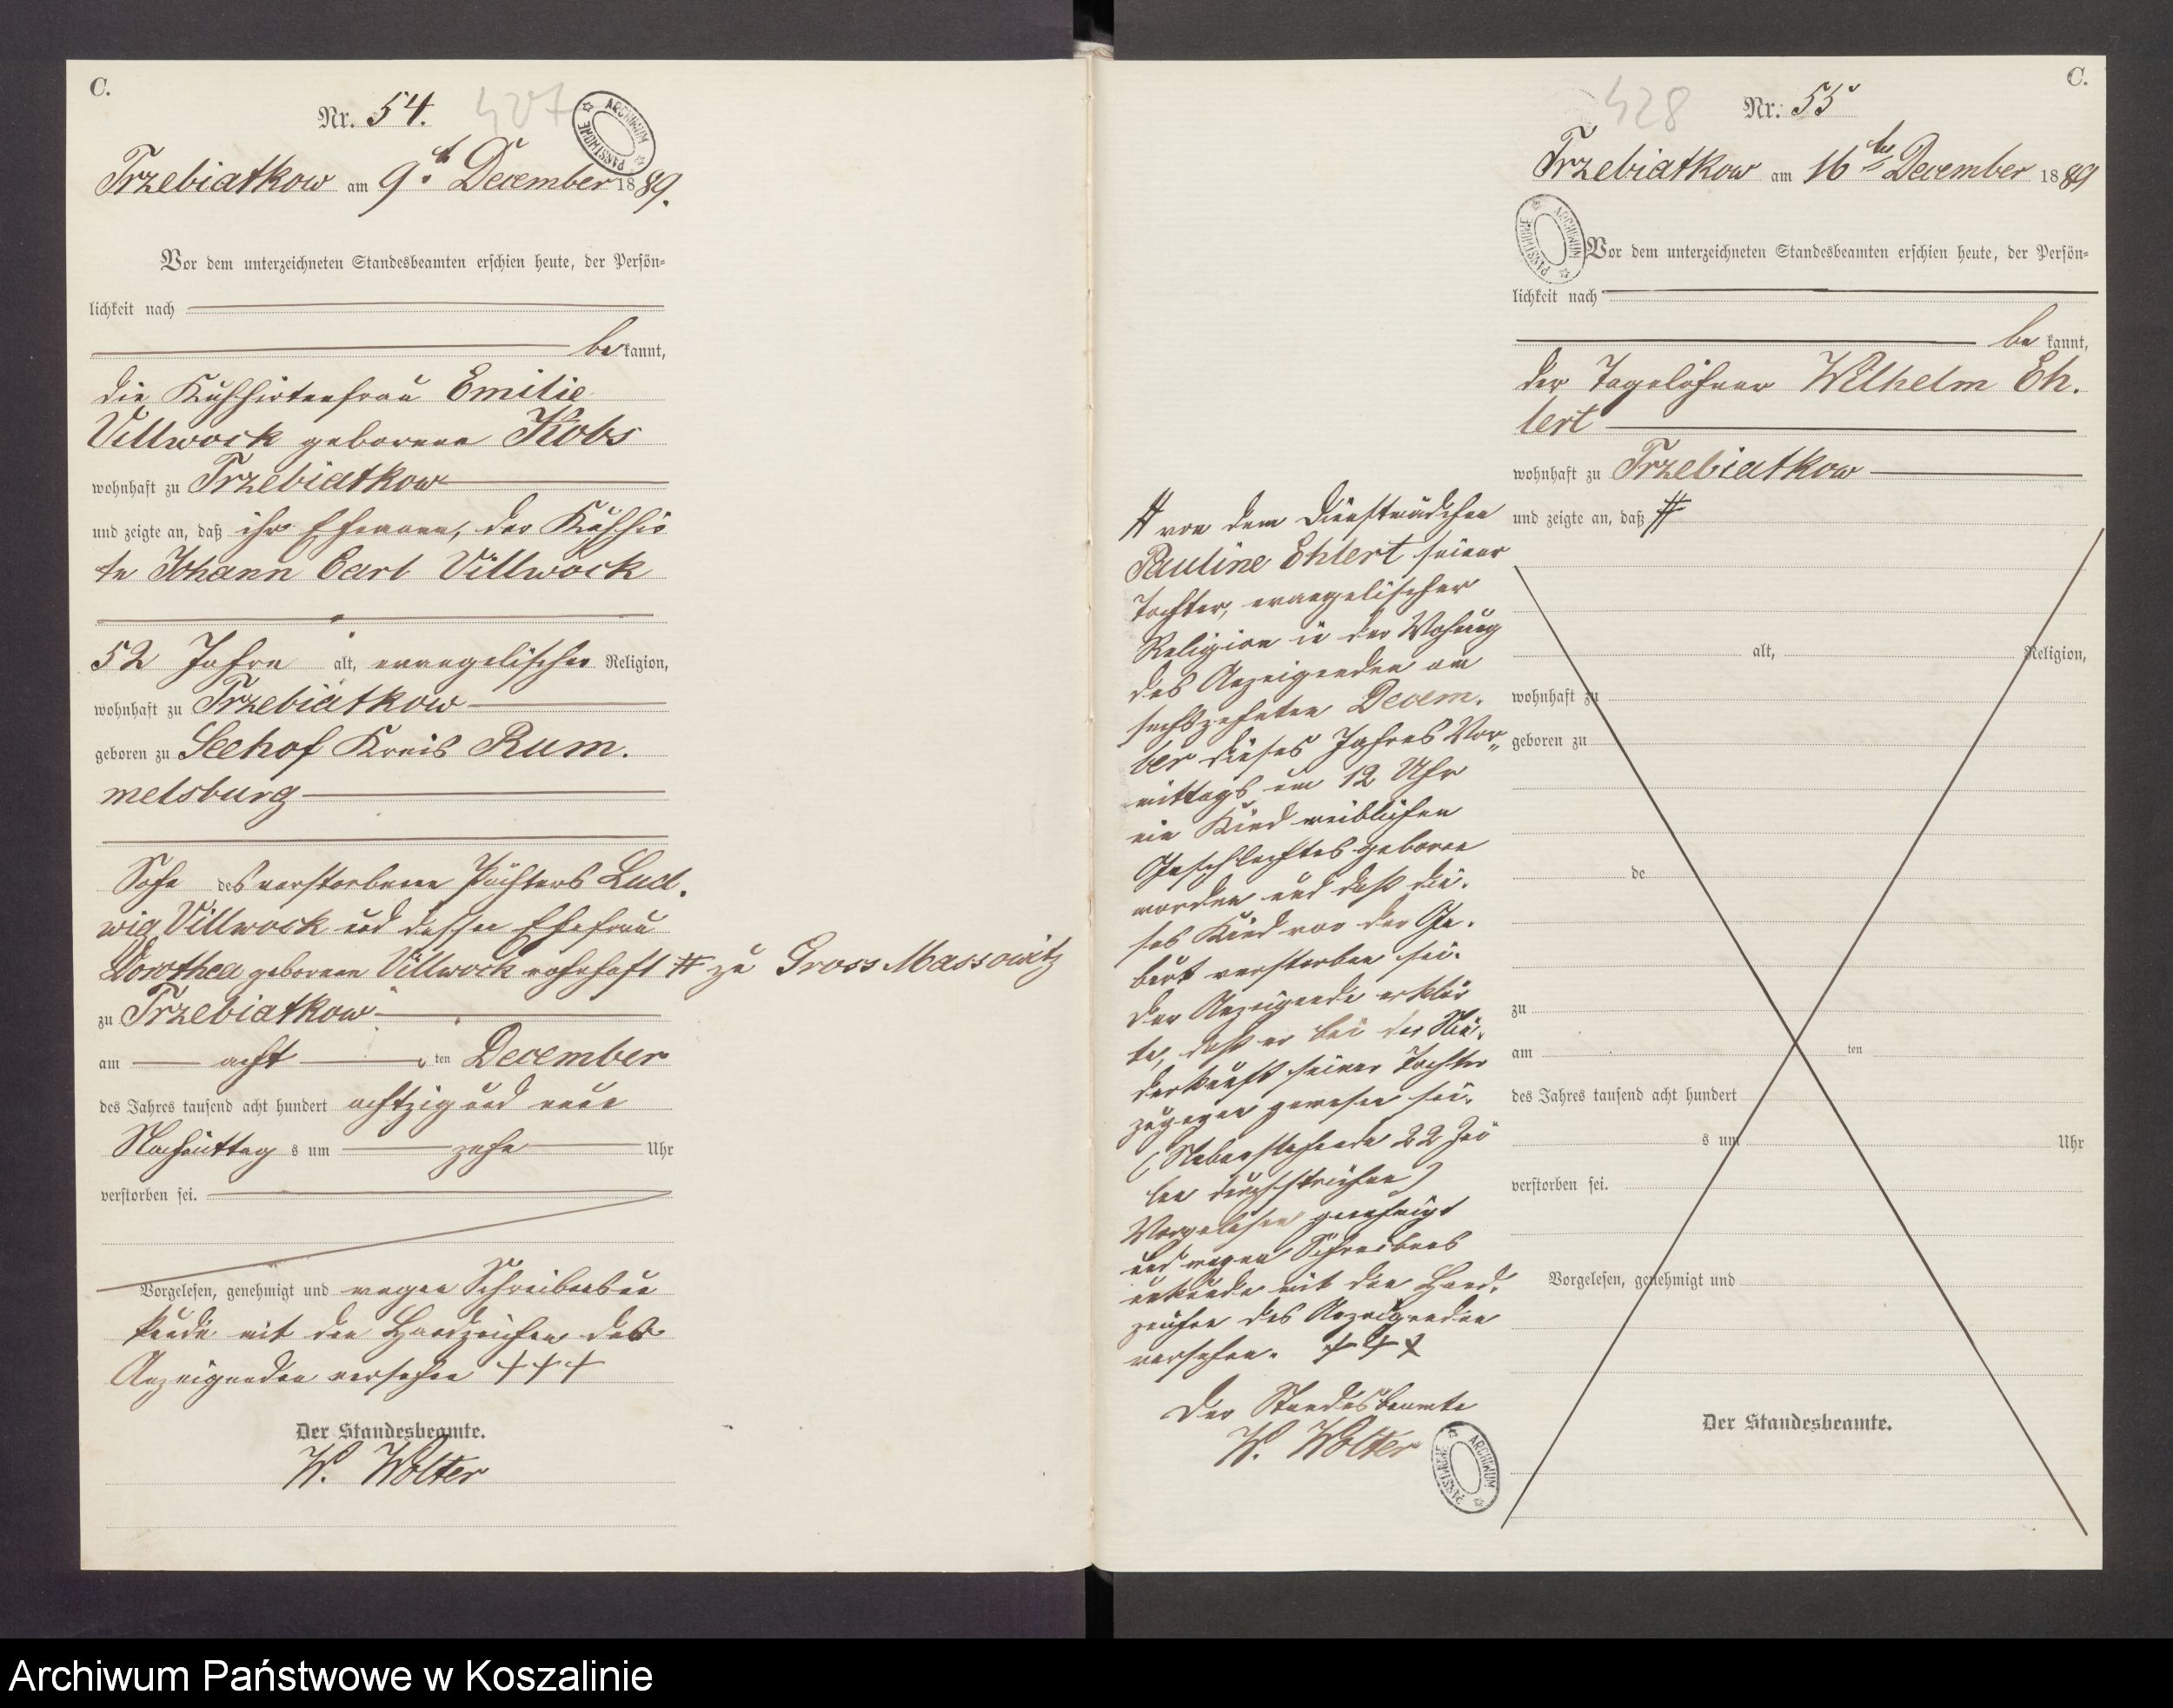 C.
Nr. 54.
427
ARCHIWUM PAŃSTWOWE
Trzebiatkow am 9t. December 1889.
Vor dem unterzeichneten Standesbeamten erschien heute, der Persön-
lichkeit nach
bekannt,
die Kuhhirtenfrau Emilie
Villwock geborene Kobs
wohnhaft zu Trzebiatkow
und zeigte an, daß ihr Ehemann, der Kuhhir
te Johann Carl Villwock
52 Jahre alt, evangelischer Religion,
wohnhaft zu Trzebiatkow
geboren zu Seehof Kreis Rum.
melsburg
Sohn des verstorbenen Pächters Lud.
wig Villwock und dessen Ehefrau
Dorothea geborene Villwock wohnhaft # zu Gross Massowitz
zu Trzebiatkow
am acht ten December
des Jahres tausend acht hundert achtzig und neun
Nachmittags um zehn Uhr
verstorben sei.
Vorgelesen, genehmigt und wegen Schreibensun
kunde mit den Handzeichen des
Anzeigenden versehen +++
Der Standesbeamte.
W. Wolter
C.
428
Nr. 55
Trzebiatkow am 16ten December 1889
ARCHIWUM PAŃSTWOWE
Vor dem unterzeichneten Standesbeamten erschien heute, der Persön-
lichkeit nach
bekannt,
der Tagelöhner Wilhelm Eh.
lert
wohnhaft zu Trzebiatkow
und zeigte an, daß #
# von dem Dienstmädchen
Pauline Ehlert seiner
Tochter, evangelischer
Religion in der Wohnung
des Anzeigenden am
sechszehnten Decem.
ber dieses Jahres Vor„
mittags um 12 Uhr
ein Kind weiblichen
Geschlechtes geboren
worden und daß die.
ses Kind vor der Ge.
burt verstorben sei.
Der Anzeigende erklär
te, daß er bei der Nie.
derkunft seiner Tochter
zugegen gewesen sei.
(Nebenstehende 22 Zei
len durchstrichen)
Vorgelesen genehmigt
und wegen Schreibens
unkunde mit den Hand.
zeichen des Anzeigenden
versehen. +++
Der Standesbeamte
W. Wolter
ARCHIWUM PAŃSTWOWE
alt, Religion,
wohnhaft zu
geboren zu
de
zu
am ten
des Jahres tausend acht hundert
s um Uhr
verstorben sei.
Vorgelesen, genehmigt und
Der Standesbeamte.
Archiwum Państwowe w Koszalinie